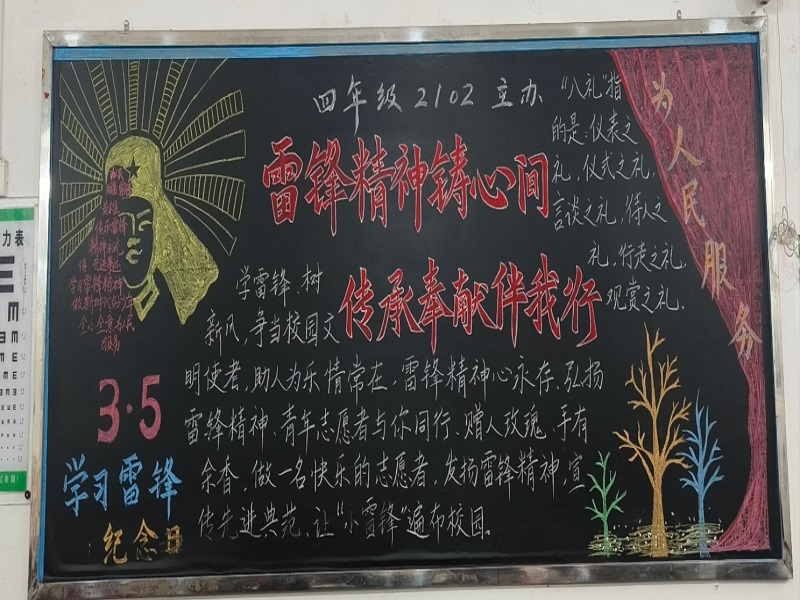 四年级2102主办
雷锋精神铸心间
传承奉献伴我行
"八礼"指
的是:仪表之
礼,仪式之礼,
言谈之礼,待人之
礼,行走之礼,
观赏之礼.
为人民服务
学雷锋、树
新风,争当校园文
明使者,助人为乐情常在,雷锋精神心永存.弘扬
雷锋精神、青年志愿者与你同行、赠人玫瑰、手有
余香,做一名快乐的志愿者,发扬雷锋精神,宣
传先进典范、让"小雷锋"遍布校园。
传承雷锋
学习雷锋精神
全心全意为人民
服务
3·5
学习雷锋
纪念日
力表